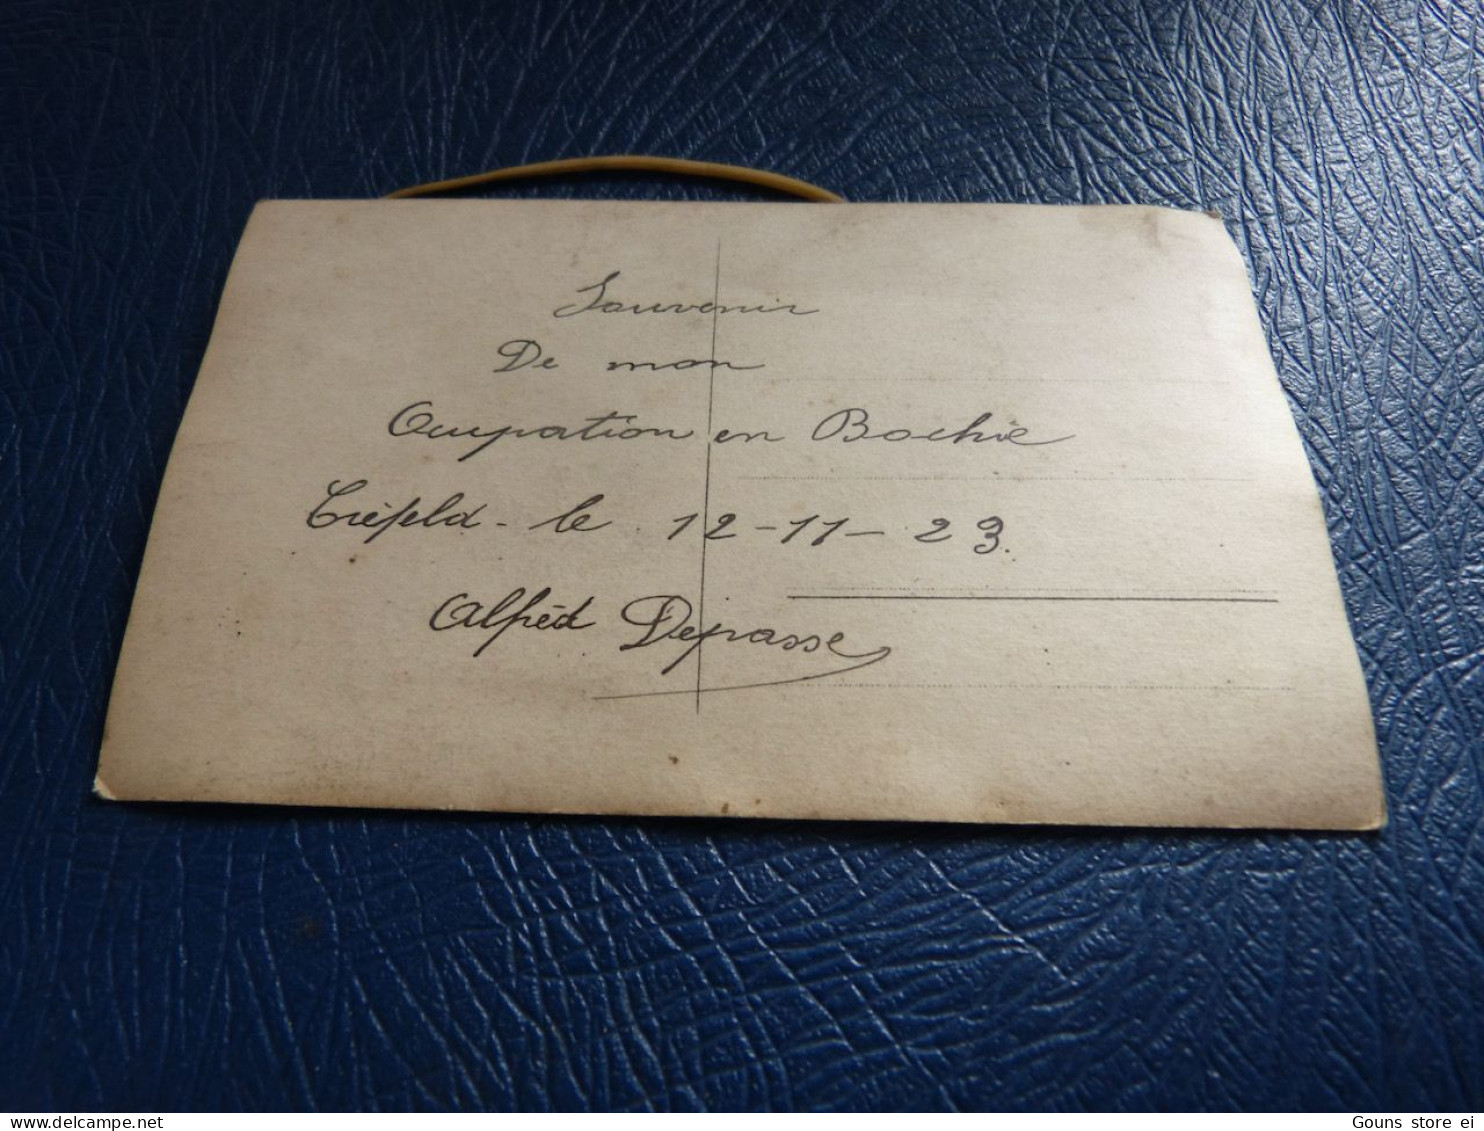 Souvenir
De mon
Ocupation en Bochie
Créfeld - le 12-11-23.
Alfred Depasse
Gouns store ei